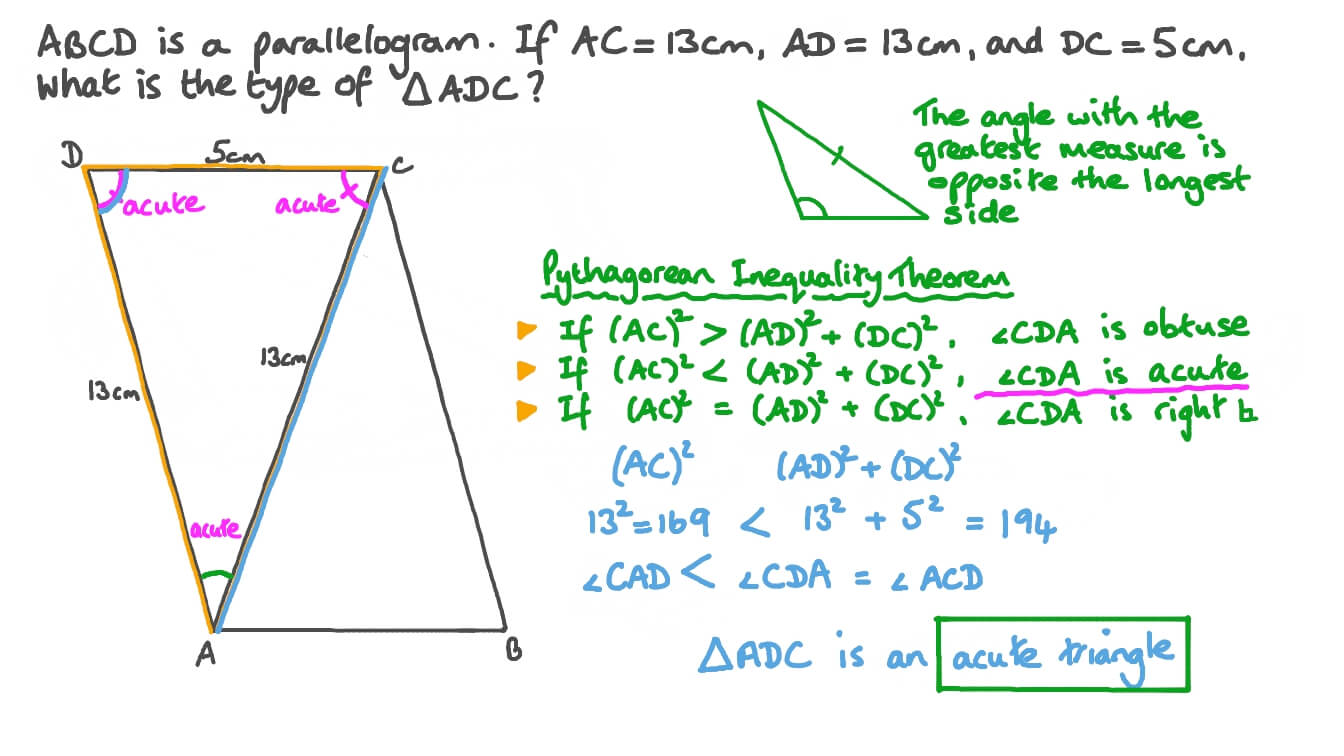 ABCD is a parallelogram. If AC = 13cm, AD = 13cm, and DC = 5cm,
what is the type of △ADC?
The angle with the
greatest measure is
opposite the longest
side
D 5cm C
acute acute
Pythagorean Inequality Theorem
▶ If (AC)² > (AD)² + (DC)², ∠CDA is obtuse
13cm
▶ If (AC)² < (AD)² + (DC)², ∠CDA is acute
13cm
▶ If (AC)² = (AD)² + (DC)², ∠CDA is right
(AC)² (AD)² + (DC)²
13² = 169 < 13² + 5² = 194
acute
∠CAD < ∠CDA = ∠ACD
A B
△ADC is an acute triangle